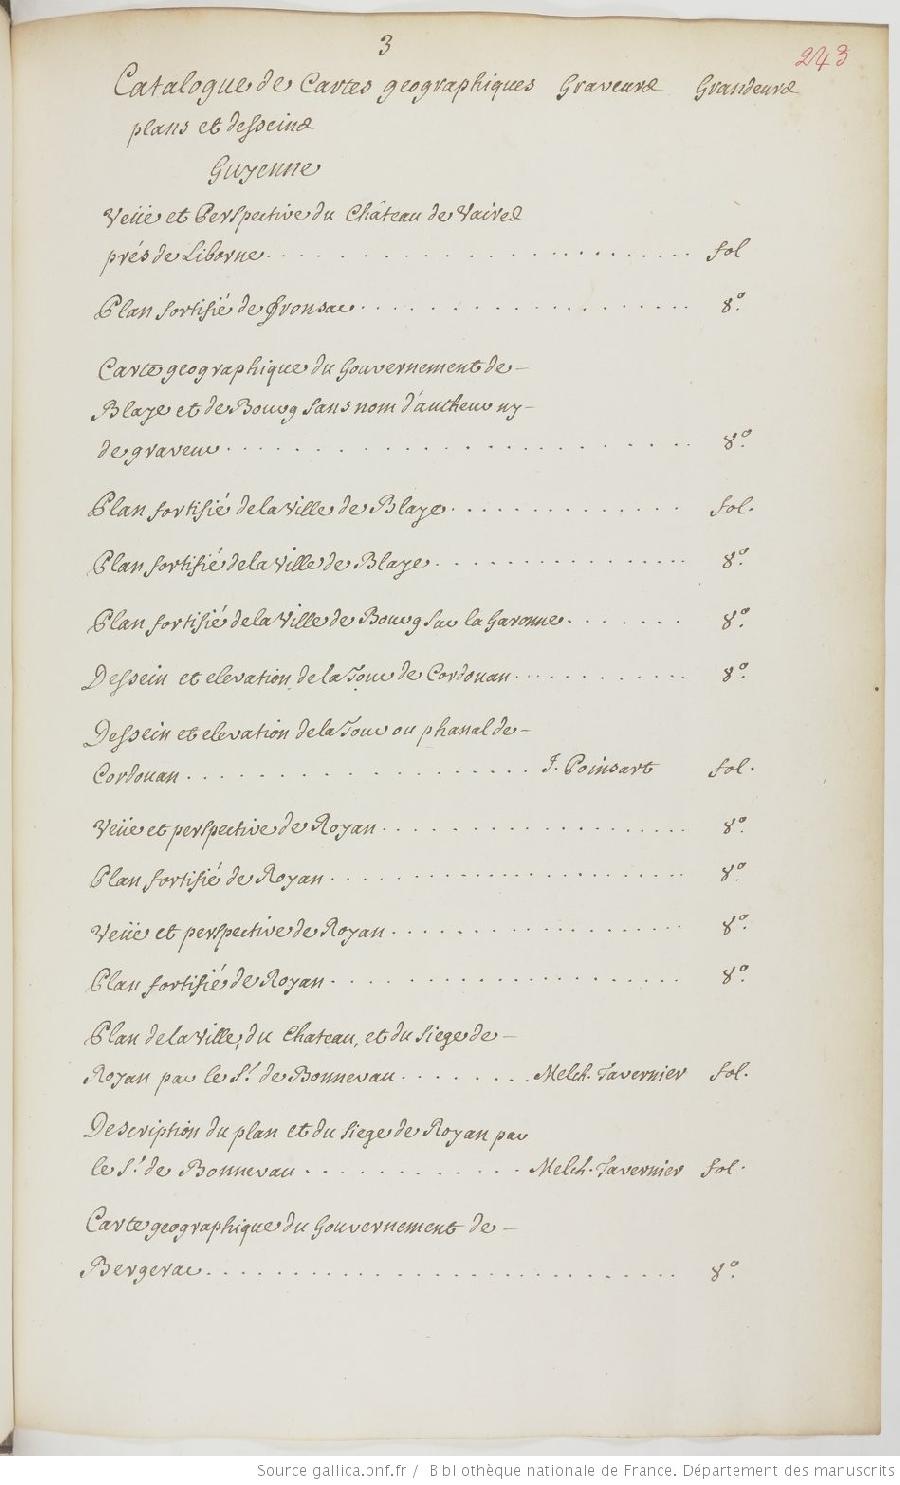 3
243
Catalogue de Cartes geographiques Graveurs Grandeurs
plans et desseins
Guyenne
Veüe et Perspective du Château de Vaires
prés de Liborne . . . . . . . . . . . . . . . . . . . . fol
Plan fortifié de Fronsac . . . . . . . . . . . . . . . . . 8º.
Carte geographique du Gouvernement de –
Blaye et de Bourg sans nom d'autheur ny –
de graveur . . . . . . . . . . . . . . . . . . . . . 8º.
Plan fortifié de la Ville de Blaye . . . . . . . . . . . . fol.
Plan fortifié de la Ville de Blaye . . . . . . . . . . . . . 8º.
Plan fortifié de la Ville de Bourg sur la Garonne . . . . . . 8º.
Dessein et elevation de la Tour de Cordouan . . . . . . . . . . 8º.
Dessein et elevation de la Tour ou phanal de –
Cordouan . . . . . . . . . . . . . . . . . J. Poinsart fol.
Veüe et perspective de Royan . . . . . . . . . . . . . . . 8º.
Plan fortifié de Royan . . . . . . . . . . . . . . . . . . 8º
Veüe et perspective de Royan . . . . . . . . . . . . . . . 8º.
Plan fortifié de Royan . . . . . . . . . . . . . . . . . . 8º.
Plan de la Ville, du Chateau, et du siege de –
Royan par le Sr. de Bonnevau . . . . . . . Melch. Tavernier fol.
Description du plan et du siege de Royan par
le Sr. de Bonnevau . . . . . . . . . . . . Melch. Tavernier fol.
Carte geographique du Gouvernement de –
Bergerac . . . . . . . . . . . . . . . . . . . . . . . 8º.
Source gallica.bnf.fr / Bibliothèque nationale de France. Département des manuscrits